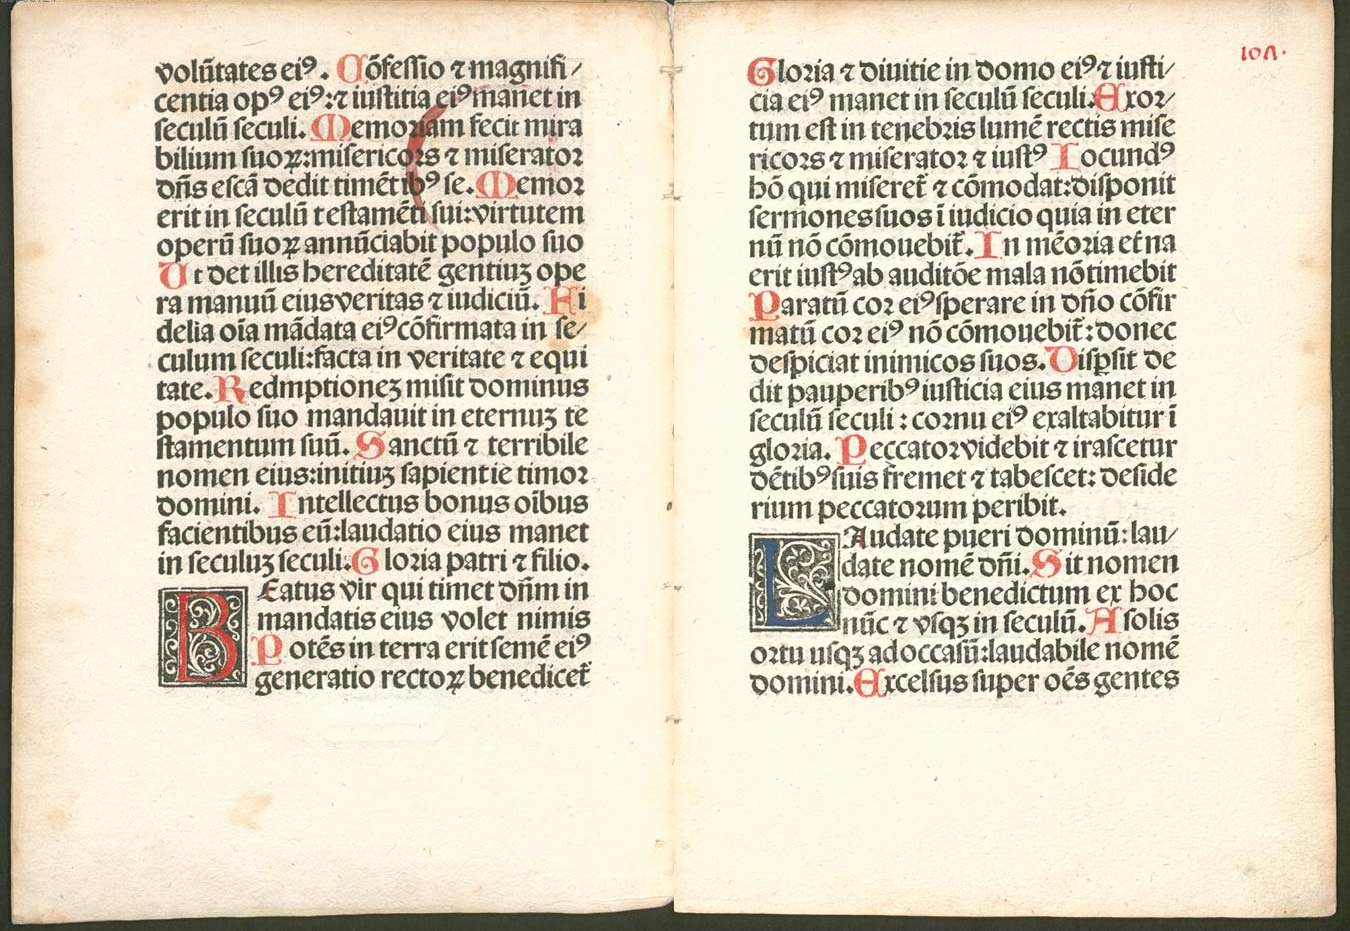 volũtates eiꝰ. Cõfessio ⁊ magnifi/
centia opꝰ eiꝰ:⁊ iustitia eiꝰ manet in
seculũ seculi. Memoriam fecit mira
bilium suoꝝ:misericors ⁊ miserator
dñs escã dedit timẽtibꝰ se. Memor
erit in seculũ testamẽti sui:virtutem
operũ suoꝝ annũciabit populo suo
Ut det illis hereditatẽ gentiuʒ ope
ra manuũ eius veritas ⁊ iudiciũ. Fi
delia oĩa mãdata eiꝰ cõfirmata in se/
culum seculi:facta in veritate ⁊ equi
tate. Redmptioneʒ misit dominus
populo suo mandauit in eternuʒ te
stamentum suũ. Sanctũ ⁊ terribile
nomen eius:initiuʒ sapientie timor
domini. Intellectus bonus oĩbus
facientibus eũ:laudatio eius manet
in seculuʒ seculi. Gloria patri ⁊ filio.
BEatus vir qui timet dñm in
mandatis eius volet nimis
Potẽs in terra erit semẽ eiꝰ
generatio rectoꝝ benedicet̃
10A.
Gloria ⁊ diuitie in domo eiꝰ ⁊ iusti/
cia eiꝰ manet in seculũ seculi. Exor/
tum est in tenebris lumẽ rectis mise
ricors ⁊ miserator ⁊ iustꝰ Iocundꝰ
hõ qui miseret̃ ⁊ cõmodat:disponit
sermones suos ĩ iudicio quia in eter
nũ nõ cõmouebit̃. In mẽoria et̃na
erit iustꝰ ab auditõe mala nõ timebit
Paratũ cor eiꝰ sperare in dño cõfir
matũ cor eiꝰ nõ cõmouebit̃:donec
despiciat inimicos suos. Disp̱sit de
dit pauperibꝰ iusticia eius manet in
seculũ seculi : cornu eiꝰ exaltabitur ĩ
gloria. Peccator videbit ⁊ irascetur
dẽtibꝰ suis fremet ⁊ tabescet: deside
rium peccatorum peribit.
LAudate pueri dominũ: lau/
date nomẽ dñi. Sit nomen
domini benedictum ex hoc
nũc ⁊ vsqʒ in seculũ. A solis
ortu usqʒ ad occasũ:laudabile nomẽ
domini. Excelsus super oẽs gentes